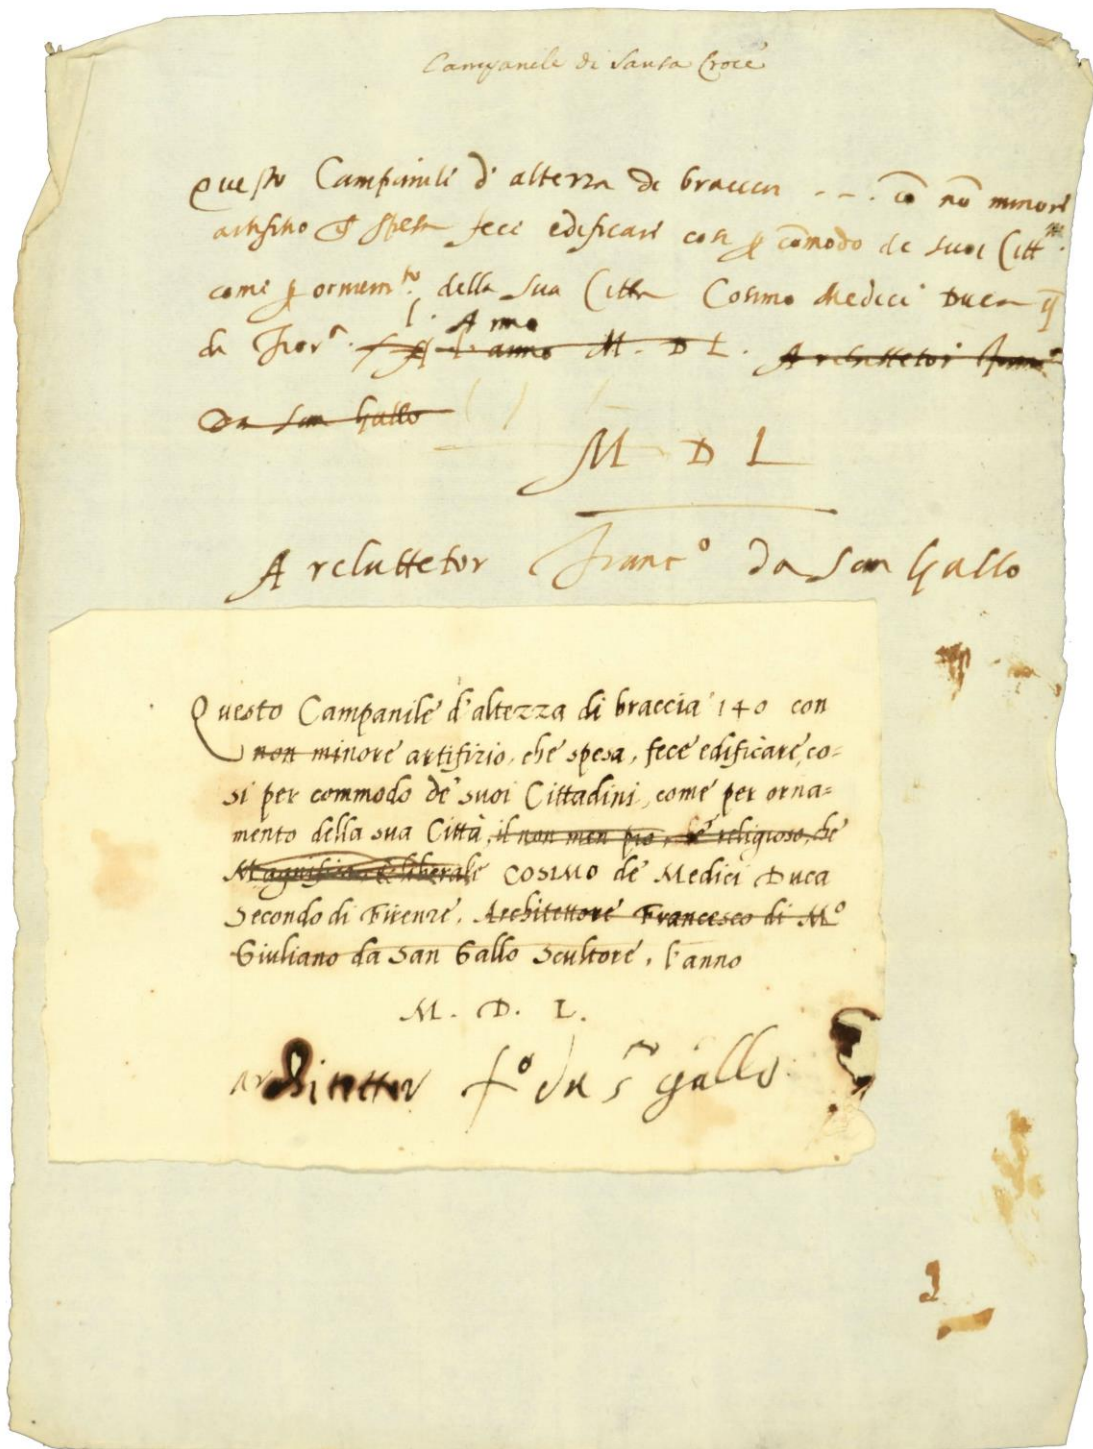 Campanile di Santa Croce
Questo Campanile d'alterza di braccia - - . cō nō minore
artifitio spesa fece edificare cosi ꝑ cōmodo de suoi Citt.ni
come ꝑ ornam.to della sua Citta Cosimo Medici Duca ij
l. Anno
di Fior.a l'anno M. D L. Architettor Franc.o
Da san Gallo
M D L
Architettor Franc.o da San Gallo
Questo Campanile d'altezza di braccia 140 con
non minore artifizio, che spesa, fece edificare, co=
si per commodo de suoi Cittadini, come per orna=
mento della sua Città, il non men pio, e religioso, che
Magnifico, e liberale COSIMO de Medici Duca
Secondo di Firenze. Architettore Francesco di M.o
Giuliano da San Gallo Scultore, l'anno
M. D. L.
architettor f.o da s.n gallo